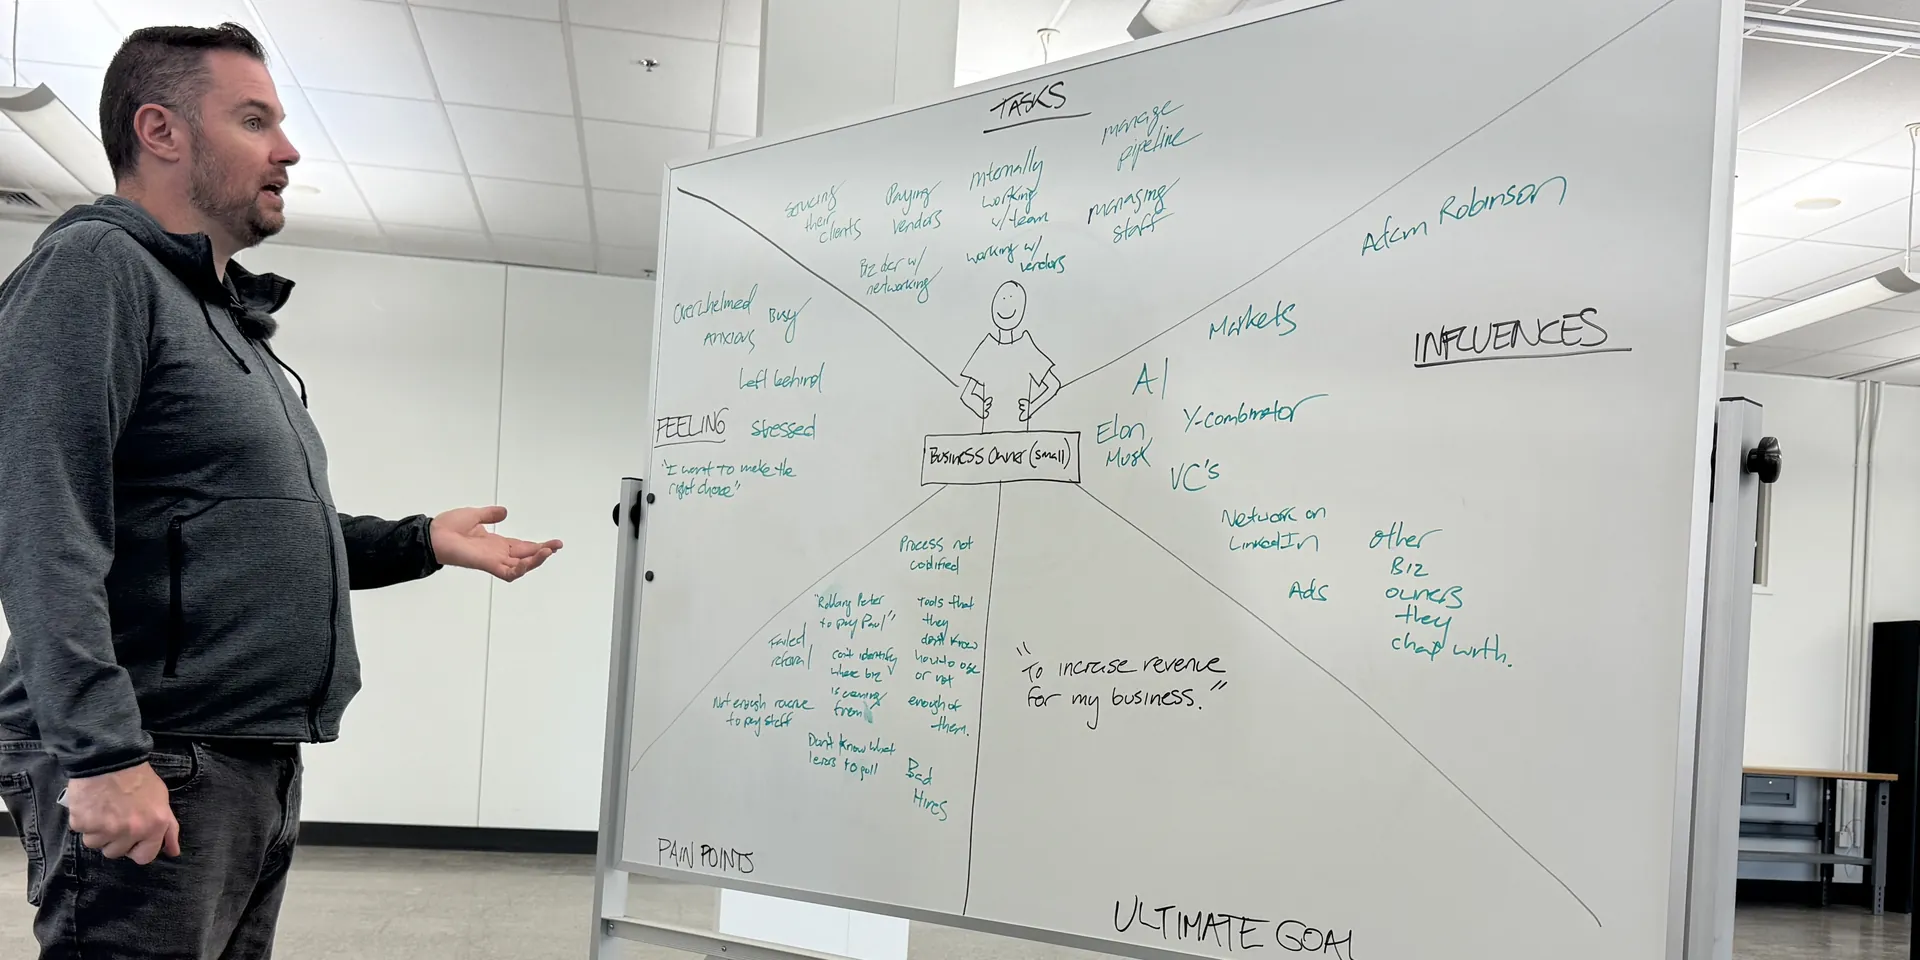 TASKS
sourcing
their
clients
Paying
vendors
internally
working
w/team
manage
pipeline
managing
staff
Biz dev w/
networking
working w/
vendors
Overwhelmed
Busy
Anxious
Left behind
FEELING
stressed
"I want to make the
right choice"
Business Owner (small)
Adam Robinson
Markets
INFLUENCES
AI
Y-combinator
Elon
Musk
VC's
Network on
LinkedIn
Ads
other
Biz
owners
they
chat with.
Process not
codified
"Robbing Peter
to pay Paul"
Tools that
they
don't know
how to use
or not
enough of
them.
Failed
referral
can't identify
where biz
is coming
from
Not enough revenue
to pay staff
Don't know what
levers to pull
Bad
Hires
PAIN POINTS
"To increase revenue
for my business."
ULTIMATE GOAL